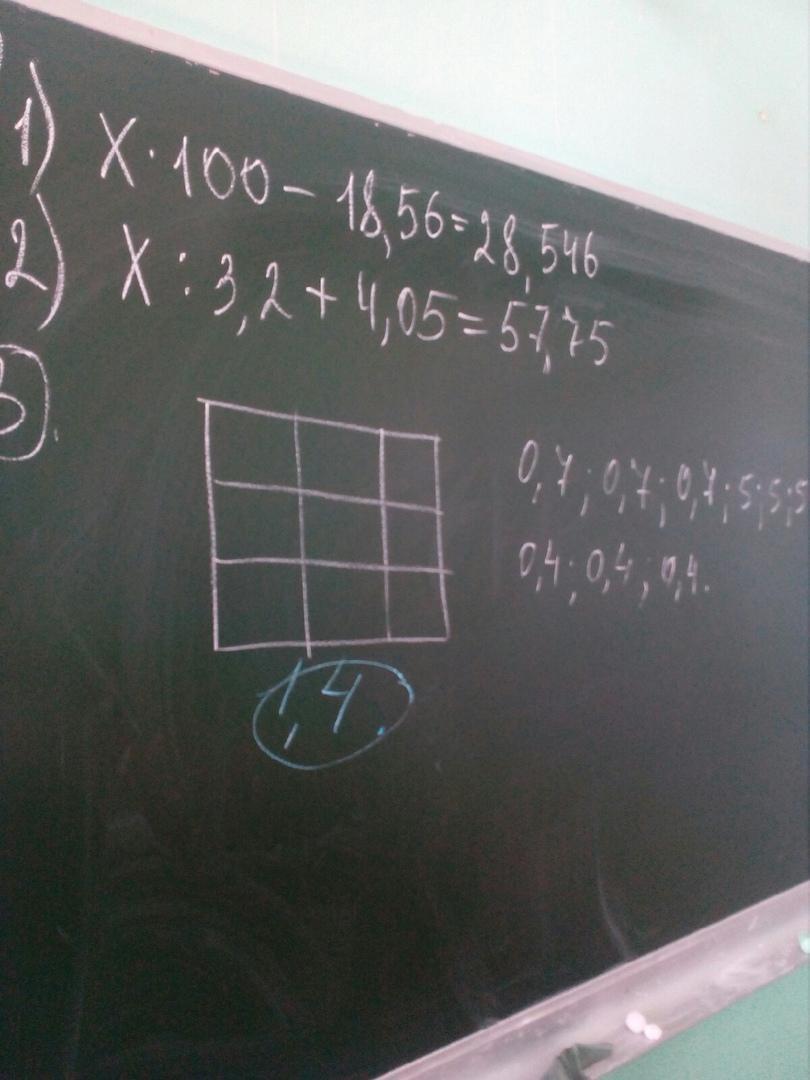 1) X · 100 - 18,56 = 28,546
2) X : 3,2 + 4,05 = 57,75
0,7; 0,7; 0,7; 5; 5; 5
0,4; 0,4; 0,4.
1,4.